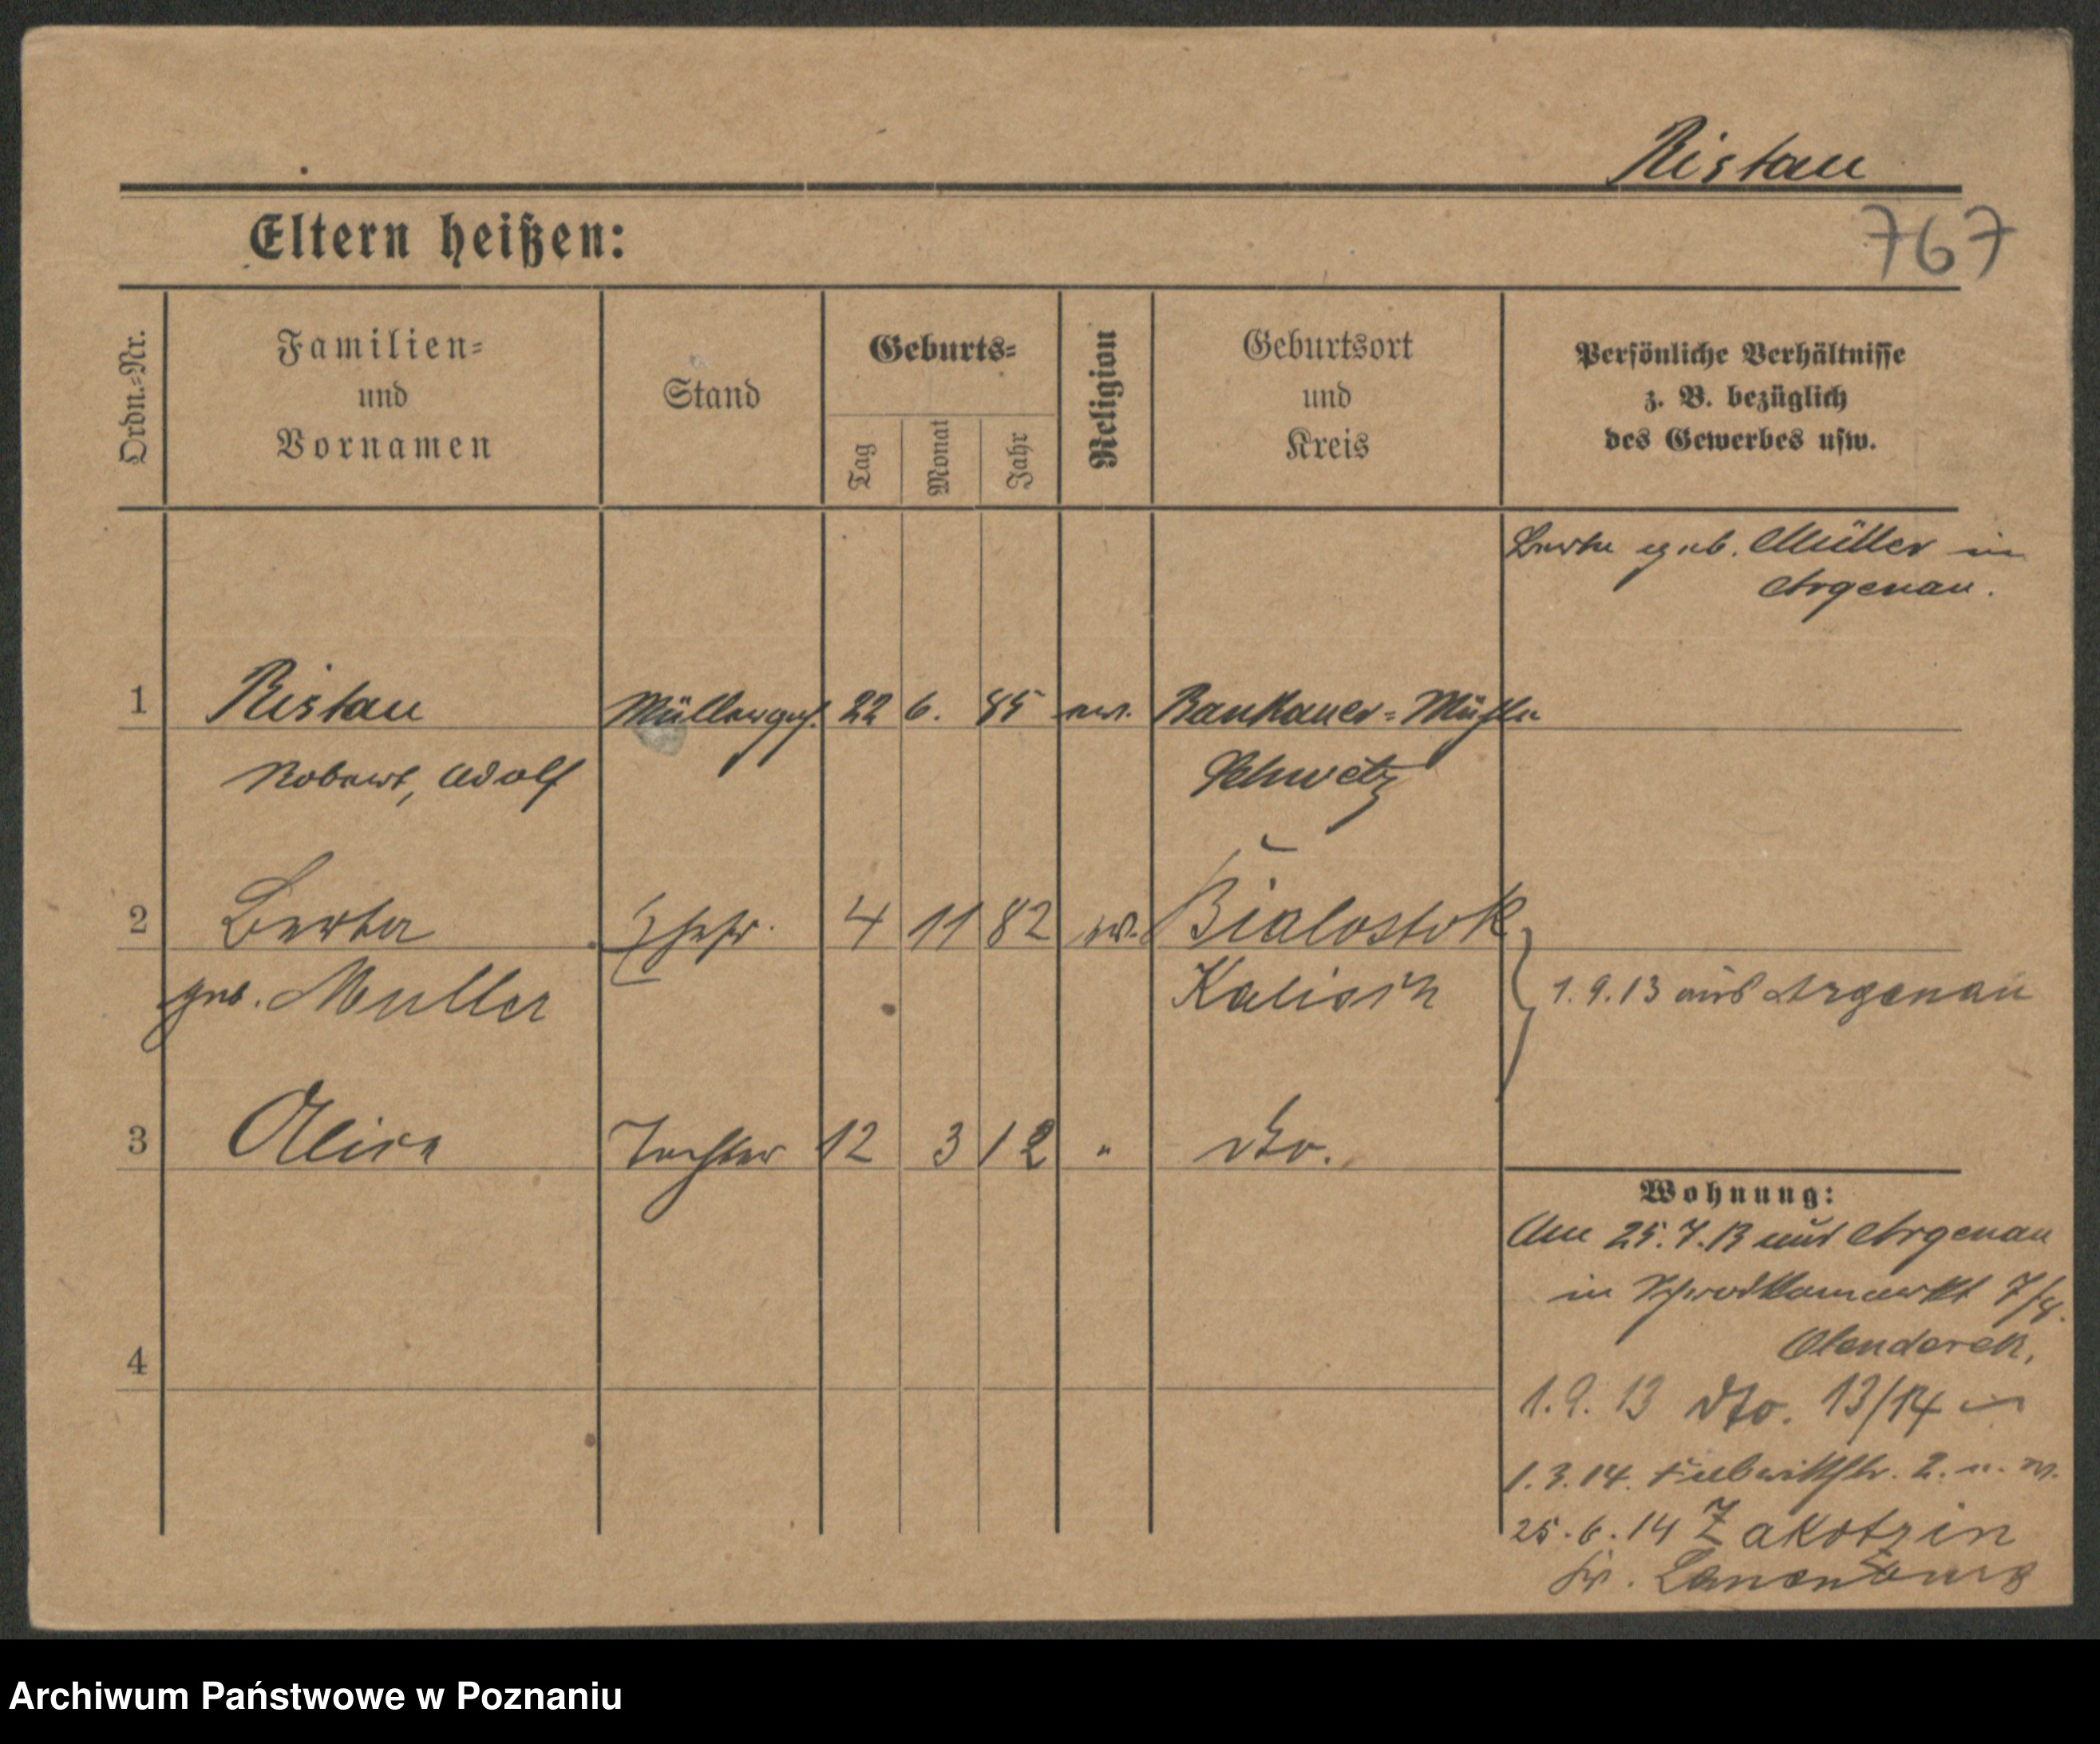 Ristau
Eltern heißen:
767
Ordn.-Nr.
Familien-
und
Vornamen
Stand
Geburts-
Tag
Monat
Jahr
Religion
Geburtsort
und
Kreis
Persönliche Verhältnisse
z. B. bezüglich
des Gewerbes usw.
geb. Müller in
Argenau.
1 Ristau Müllerges. 22 6. 85 ev. Bankauer-Mühle
Robert, Adolf Schwetz
2 Berta Ehefr. 4 11 82 ev. Bialostok
geb. Muller Kalisch 1.9.13 aus Argenau
3 Tochter 12 3 12 " dto.
Wohnung:
Am 25.7.13 aus Argenau
in Schrodkamarkt 7/8.
Olenderek.
4
1.9.13 dto. 13/14
1.3.14. 2.
25.6.14 Zakotzin
Kr.
Archiwum Państwowe w Poznaniu